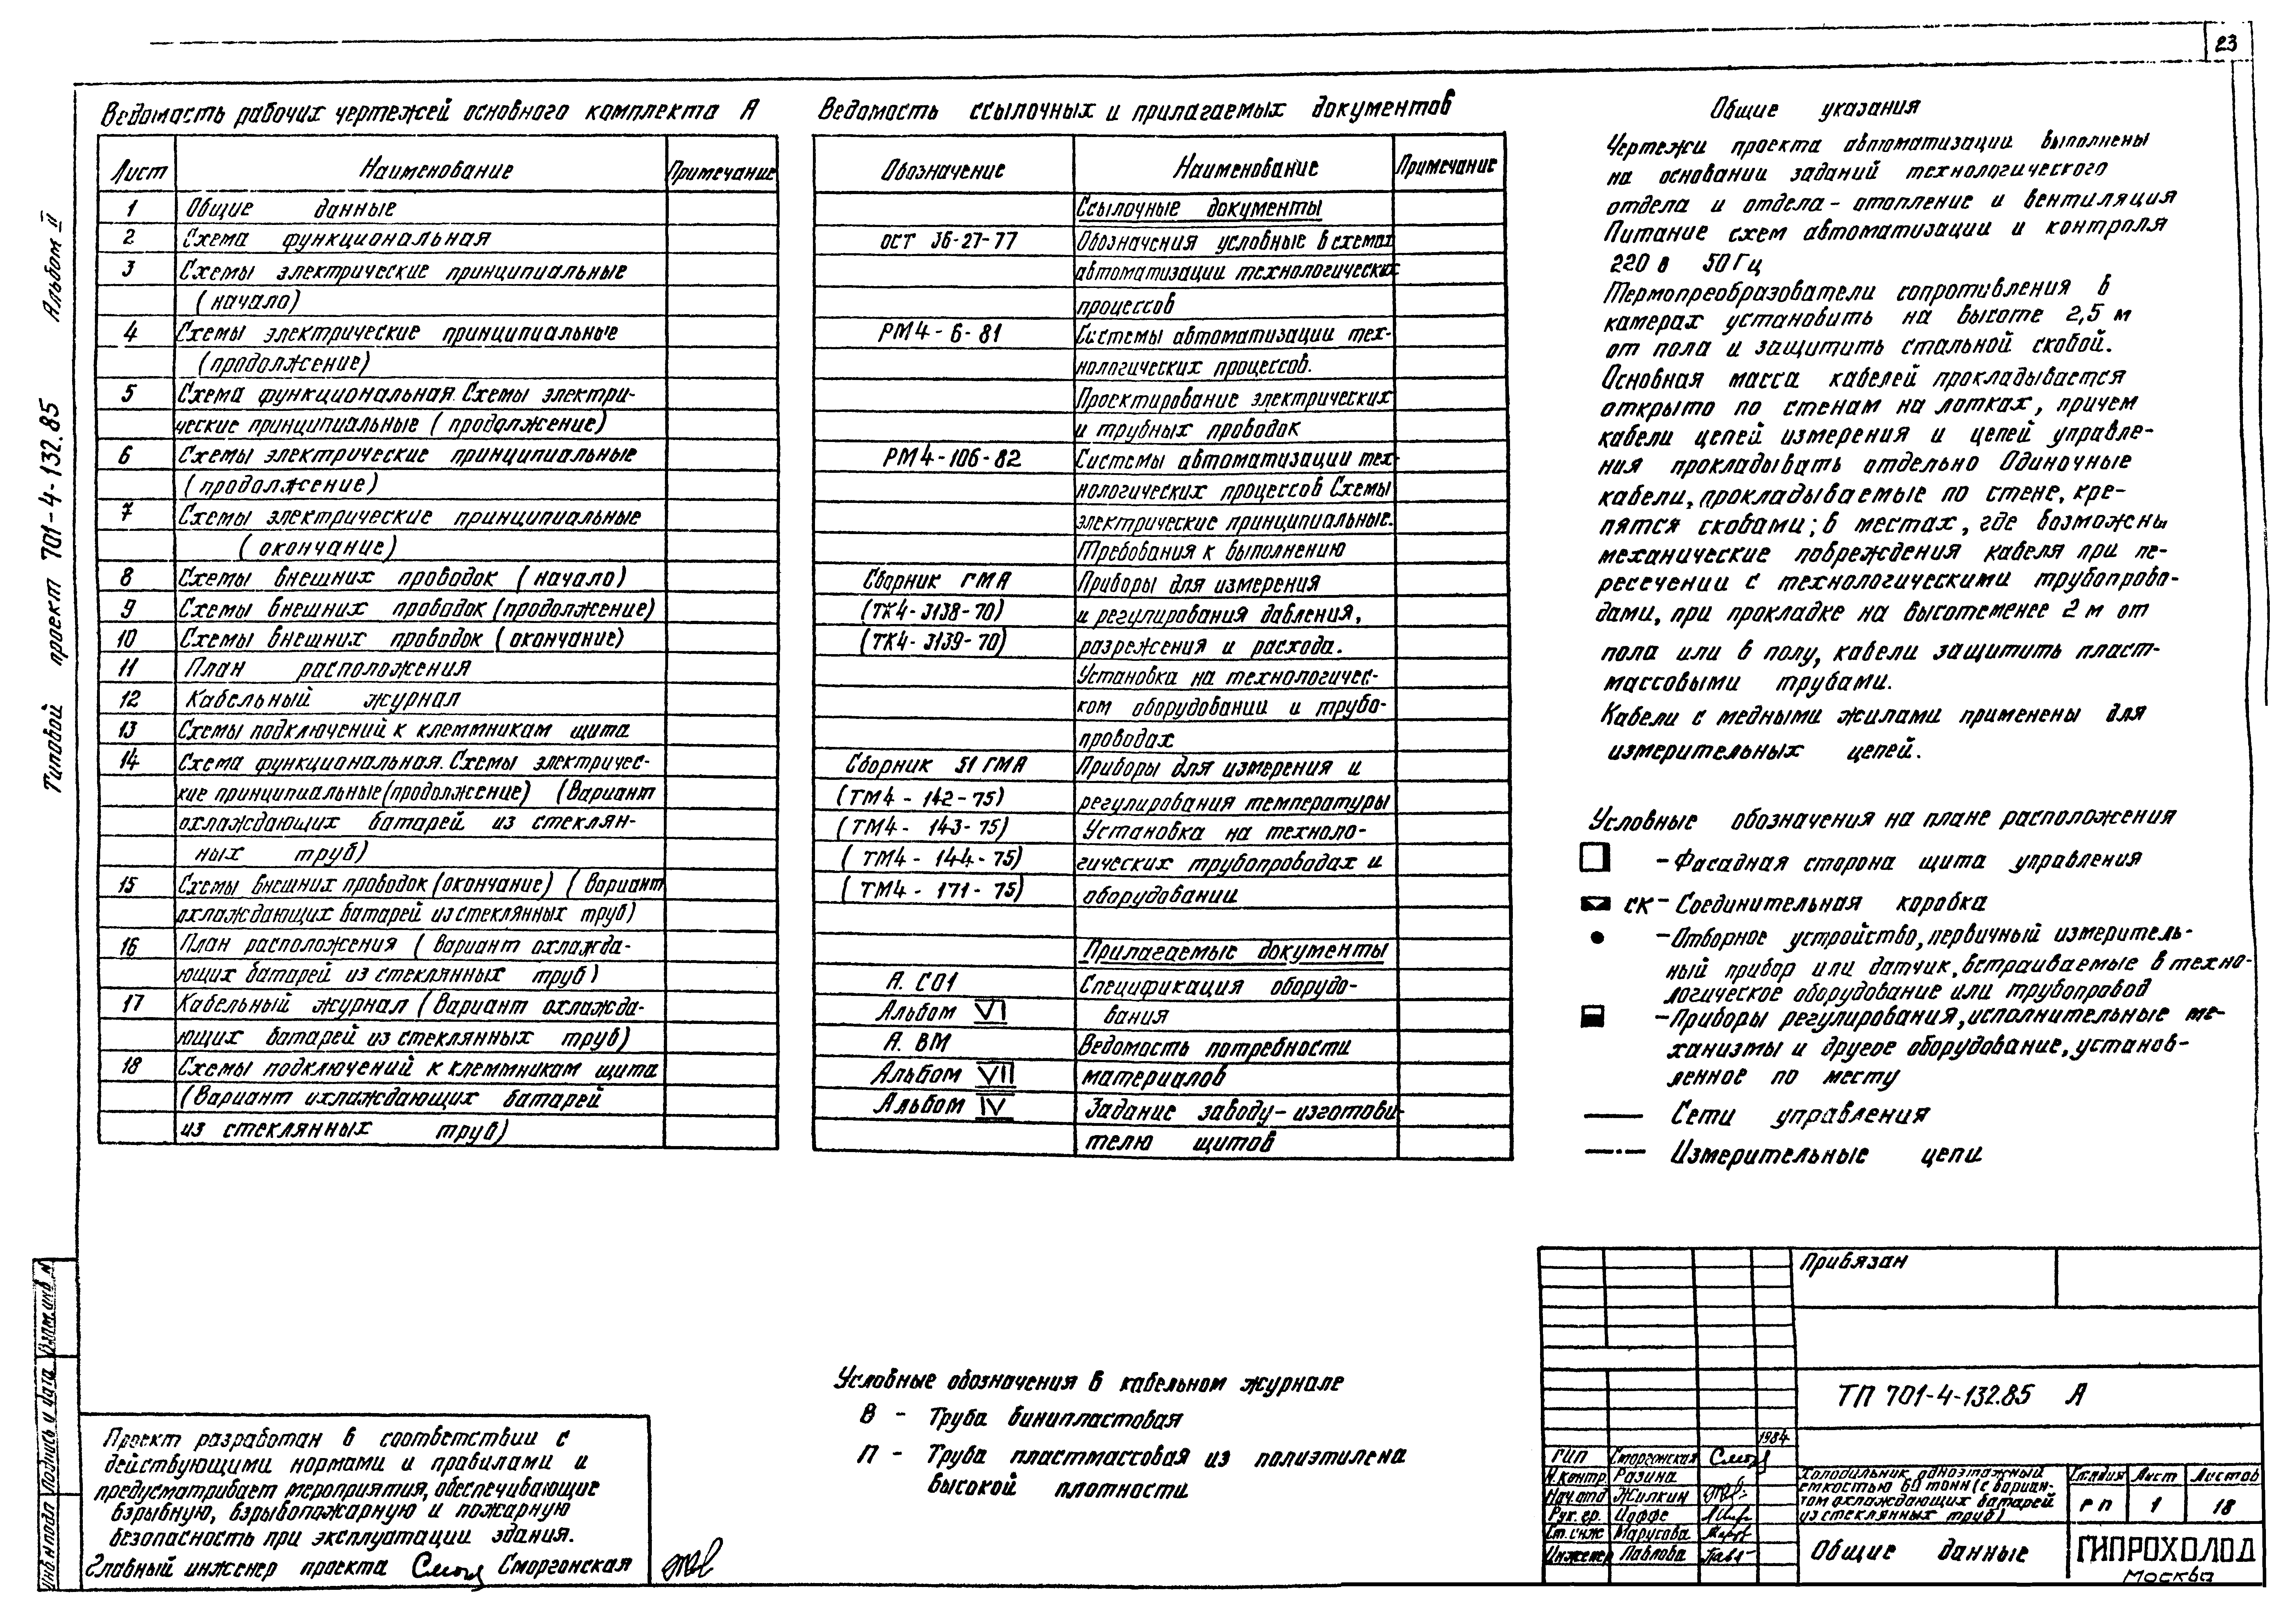 23
Типовой проект 701-4-132.85 Альбом II
Ведомость рабочих чертежей основного комплекта А
Лист Наименование Примечание
1 Общие данные
2 Схема функциональная
3 Схемы электрические принципиальные
(начало)
4 Схемы электрические принципиальные
(продолжение)
5 Схема функциональная. Схемы электри-
ческие принципиальные (продолжение)
6 Схемы электрические принципиальные
(продолжение)
7 Схемы электрические принципиальные
(окончание)
8 Схемы внешних проводок (начало)
9 Схемы внешних проводок (продолжение)
10 Схемы внешних проводок (окончание)
11 План расположения
12 Кабельный журнал
13 Схемы подключений к клеммникам щита
14 Схема функциональная. Схемы электричес-
кие принципиальные (продолжение) (Вариант
охлаждающих батарей из стеклян-
ных труб)
15 Схемы внешних проводок (окончание) (Вариант
охлаждающих батарей из стеклянных труб)
16 План расположения (Вариант охлажда-
ющих батарей из стеклянных труб)
17 Кабельный журнал (Вариант охлажда-
ющих батарей из стеклянных труб)
18 Схемы подключений к клеммникам щита
(Вариант охлаждающих батарей
из стеклянных труб)
Ведомость ссылочных и прилагаемых документов
Обозначение Наименование Примечание
Ссылочные документы
ОСТ 36-27-77 Обозначения условные в схемах
автоматизации технологических
процессов
РМ4-6-81 Системы автоматизации тех-
нологических процессов.
Проектирование электрических
и трубных проводок
РМ4-106-82 Системы автоматизации тех-
нологических процессов Схемы
электрические принципиальные.
Требования к выполнению
Сборник ГМА Приборы для измерения
(ТК4-3138-70) и регулирования давления,
(ТК4-3139-70) разрежения и расхода.
Установка на технологичес-
ком оборудовании и трубо-
проводах
Сборник 51 ГМА Приборы для измерения и
(ТМ4-142-75) регулирования температуры
(ТМ4-143-75) Установка на техноло-
(ТМ4-144-75) гических трубопроводах и
(ТМ4-171-75) оборудовании
Прилагаемые документы
А. СО1 Спецификация оборудо-
Альбом VI вания
А. ВМ Ведомость потребности
Альбом VII материалов
Альбом IV Задание заводу-изготови-
телю щитов
Общие указания
Чертежи проекта автоматизации выполнены
на основании заданий технологического
отдела и отдела - отопление и вентиляция
Питание схем автоматизации и контроля
220 в 50 Гц
Термопреобразователи сопротивления в
камерах установить на высоте 2,5 м
от пола и защитить стальной скобой.
Основная масса кабелей прокладывается
открыто по стенам на лотках, причем
кабели цепей измерения и цепей управле-
ния прокладывать отдельно Одиночные
кабели, прокладываемые по стене, кре-
пятся скобами; в местах, где возможны
механические повреждения кабеля при пе-
ресечении с технологическими трубопрово-
дами, при прокладке на высоте менее 2 м от
пола или в полу, кабели защитить пласт-
массовыми трубами.
Кабели с медными жилами применены для
измерительных цепей.
Условные обозначения на плане расположения
- Фасадная сторона щита управления
СК - Соединительная коробка
- Отборное устройство, первичный измеритель-
ный прибор или датчик, встраиваемые в техно-
логическое оборудование или трубопровод
- Приборы регулирования, исполнительные ме-
ханизмы и другое оборудование, установ-
ленное по месту
Сети управления
Измерительные цепи
Условные обозначения в кабельном журнале
В - Труба винипластовая
П - Труба пластмассовая из полиэтилена
высокой плотности
Проект разработан в соответствии с
действующими нормами и правилами и
предусматривает мероприятия, обеспечивающие
взрывную, взрывопожарную и пожарную
безопасность при эксплуатации здания.
Главный инженер проекта Сморгонская
Инв.№ подл Подпись и дата Взам.инв №
Привязан
ТП 701-4-132.85 А
1984
ГИП Сморгонская
Н.контр. Разина
Нач.отд Жилкин
Рук. гр. Иоффе
Ст. инж Марусова
Инженер Павлова
Холодильник одноэтажный
емкостью 60 тонн (с вариан-
том охлаждающих батарей
из стеклянных труб)
Стадия Лист Листов
РП 1 18
Общие данные
ГИПРОХОЛОД
Москва